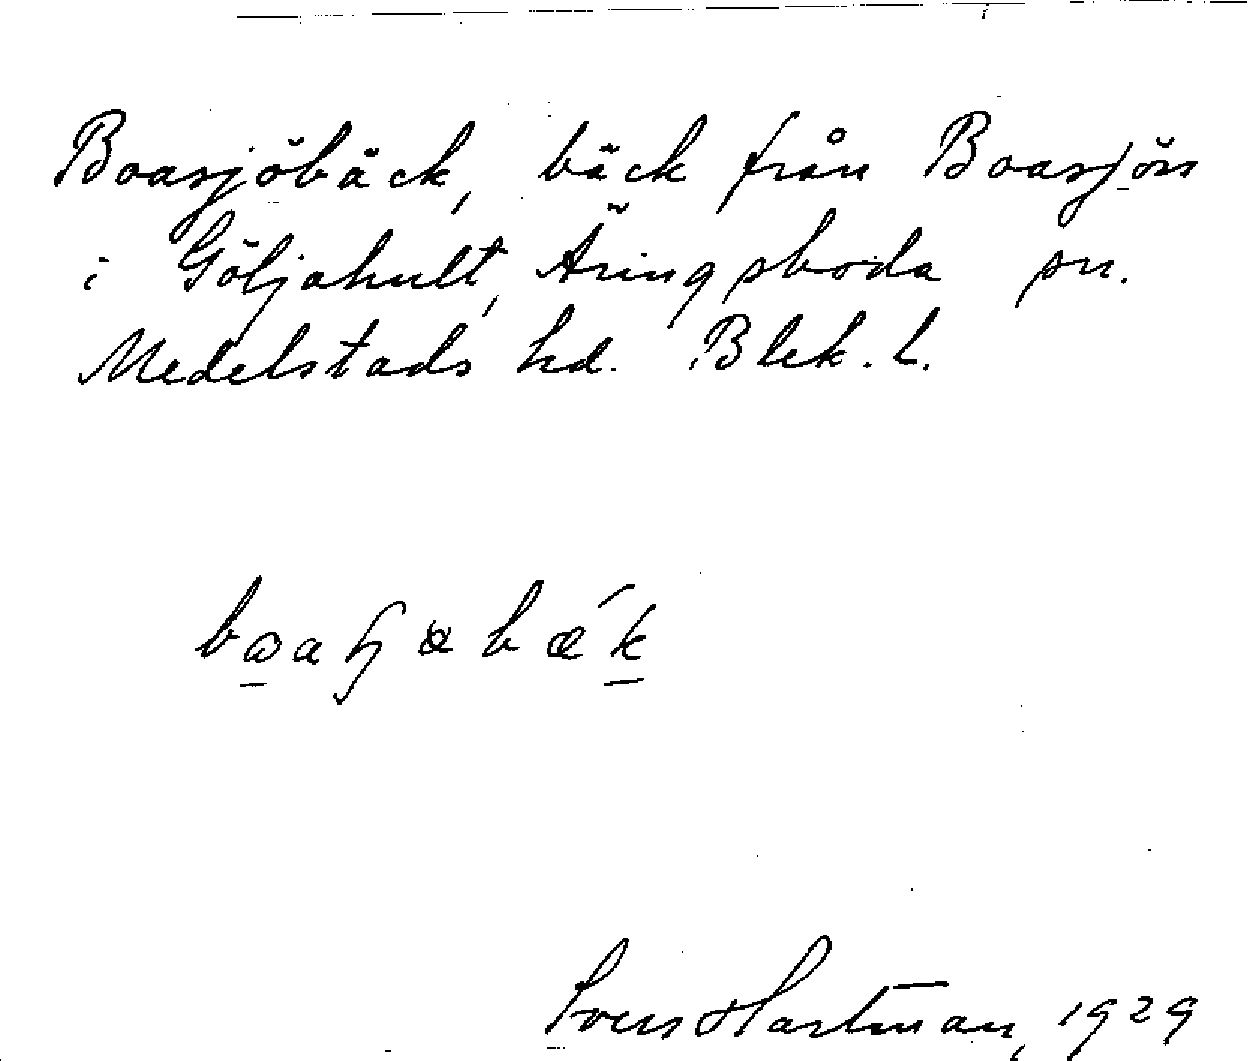 Boasjöbäck, bäck från Boasjön
i Göljahult, Äringsboda sn.
Medelstads hd. Blek. l.
Sven Hartman, 1929